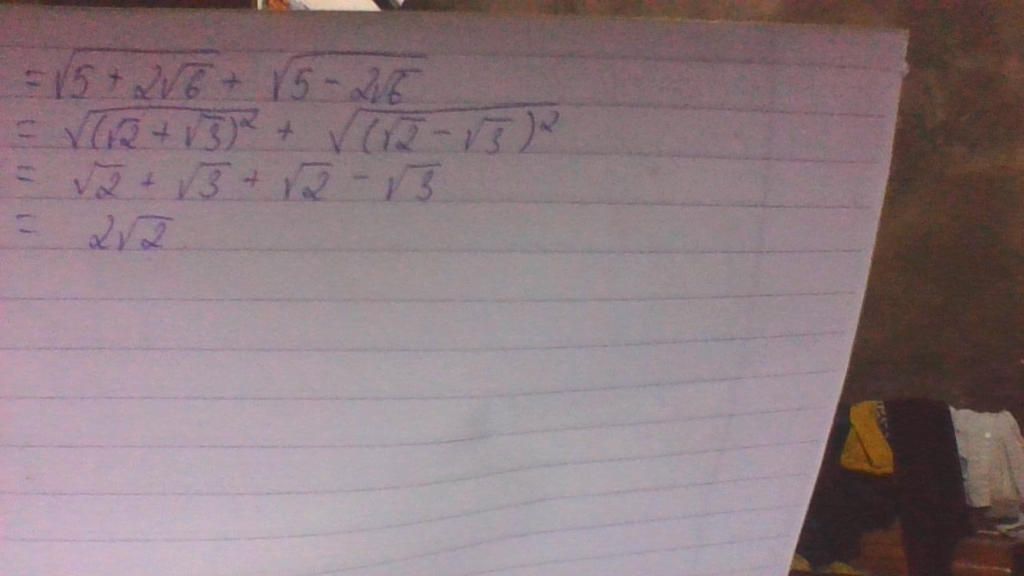 = √5 + 2√6 + √5 - 2√6
= √(√2 + √3)² + √(√2 - √3)²
= √2 + √3 + √2 - √3
= 2√2